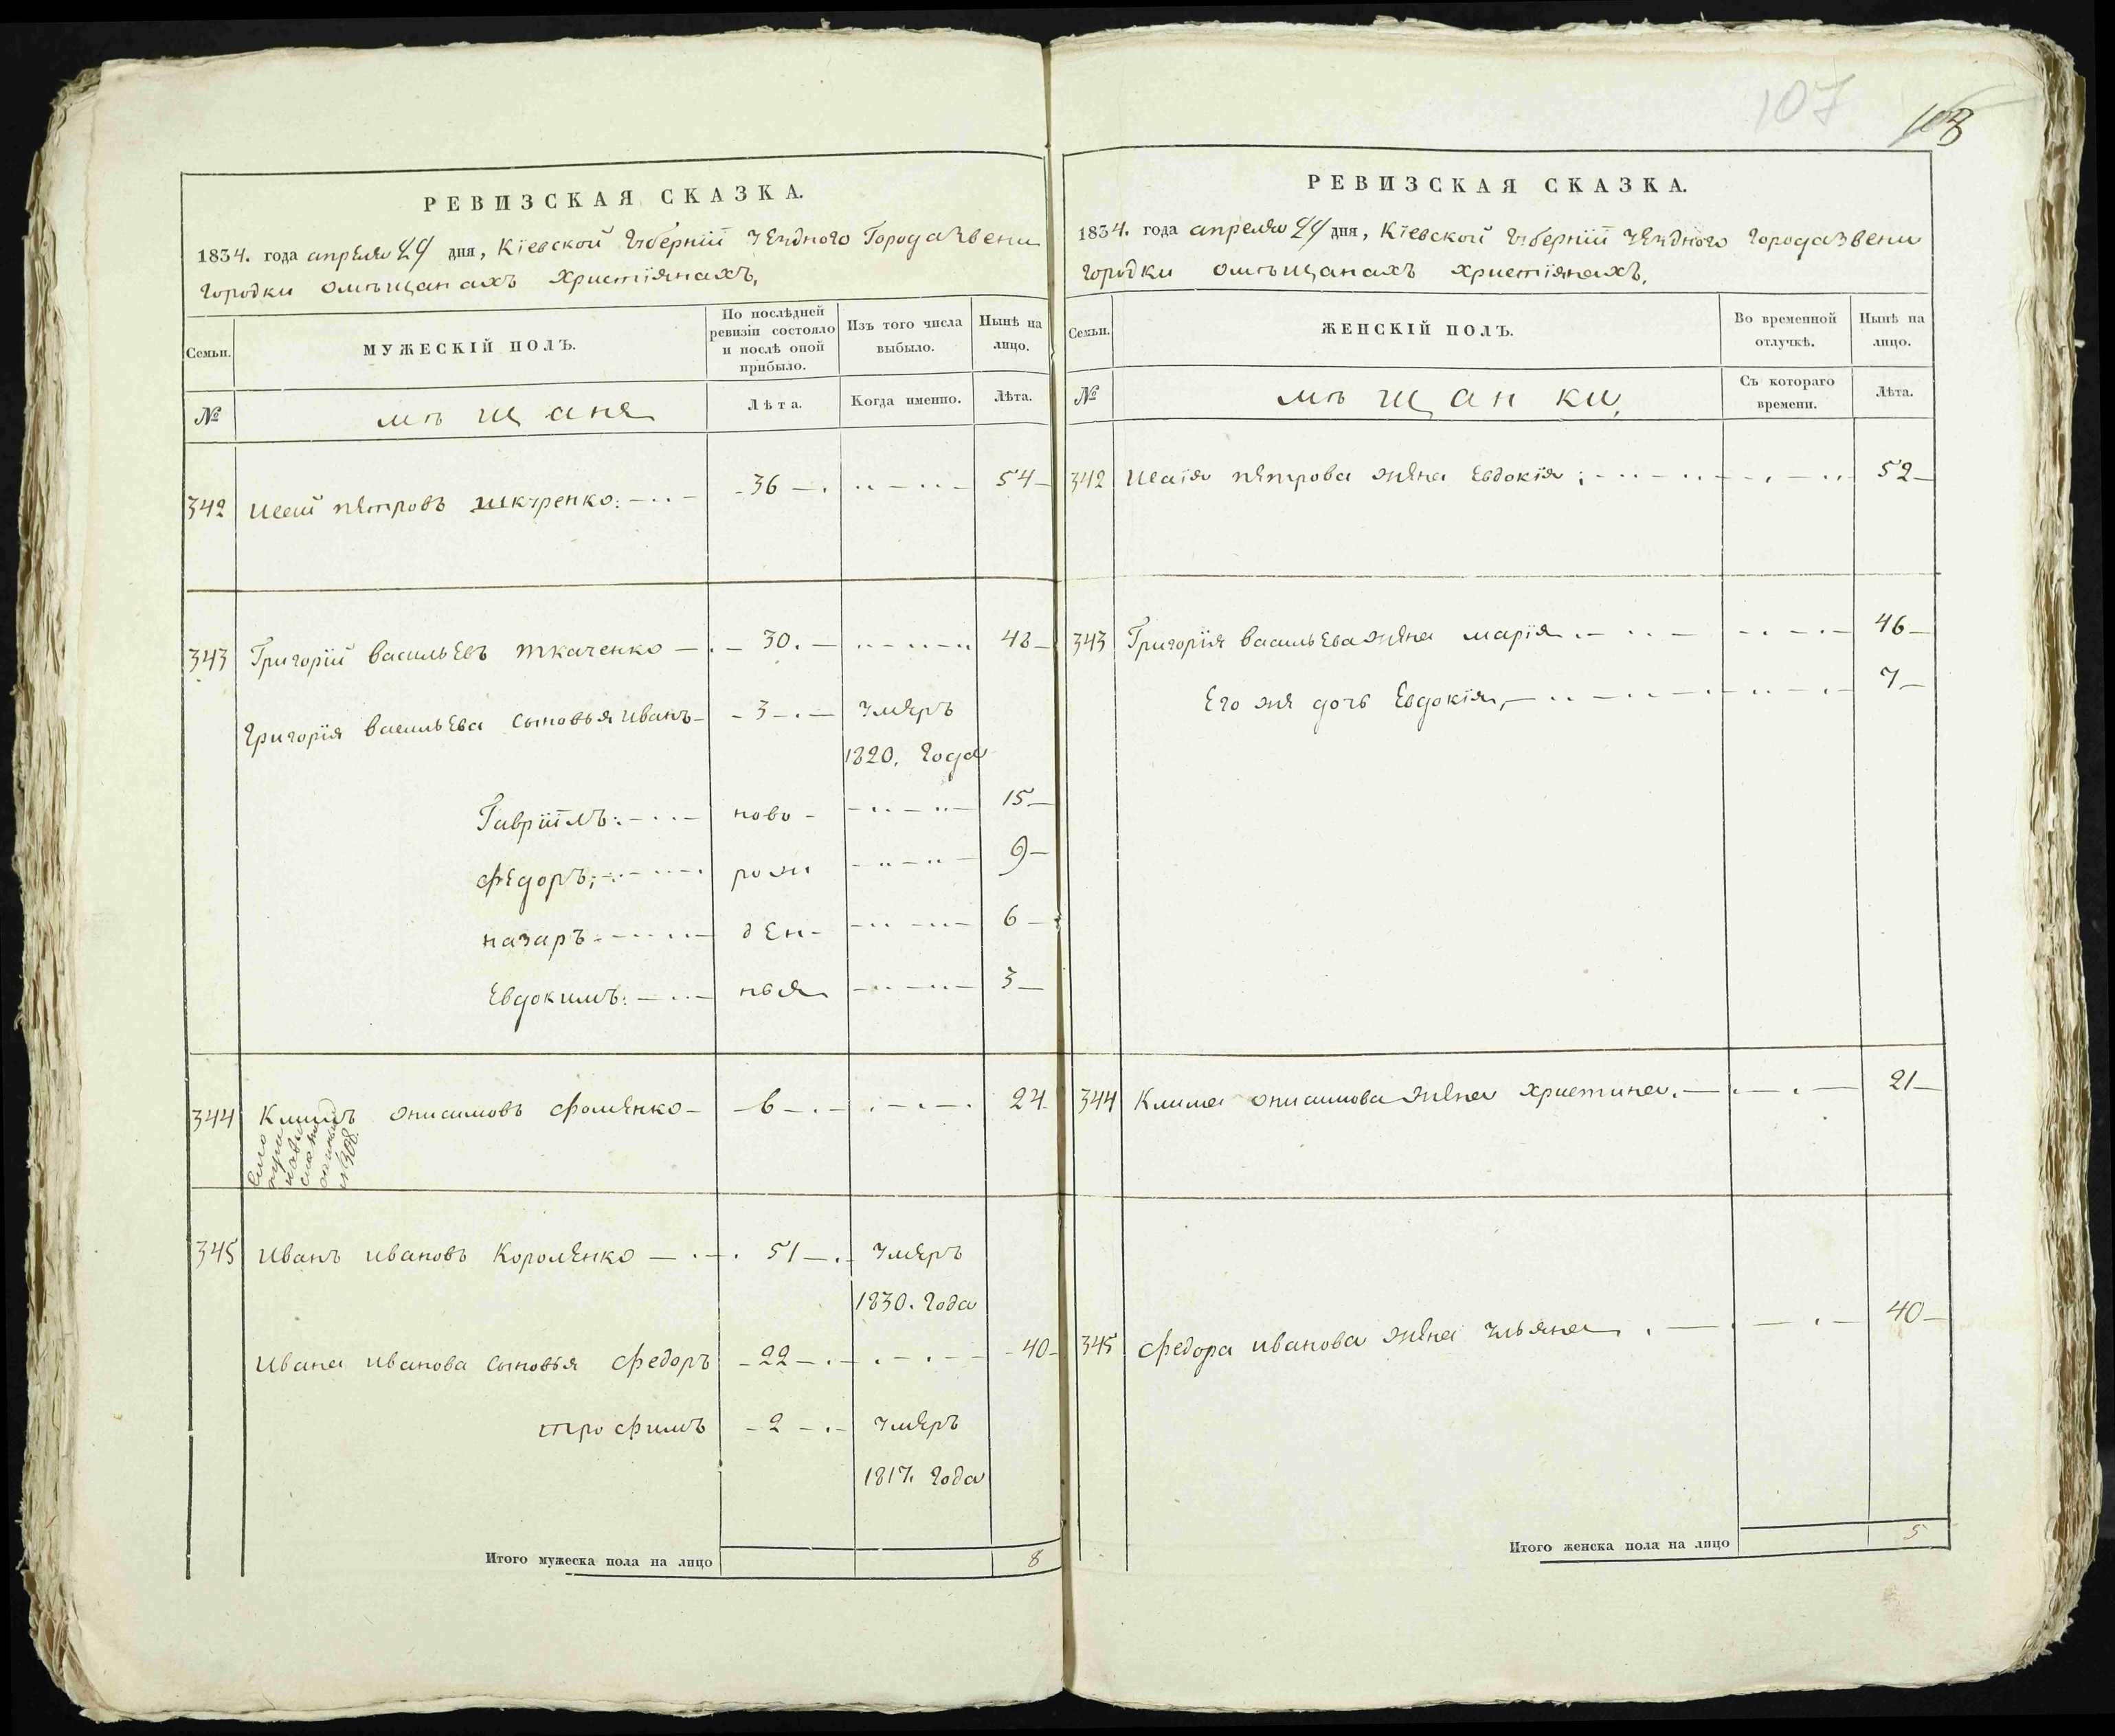 107
103
РЕВИЗСКАЯ СКАЗКА.
1834. года апреля 24 дня, Кіевской Губерніи уездного Города Звени
городки омѣщанахъ христіянахъ,
Семьи.
МУЖЕСКІЙ ПОЛЪ.
По послѣдней ревизіи состояло и послѣ оной прибыло.
Изъ того числа выбыло.
Нынѣ на лицо.
№
мѣщане
Лѣта.
Когда именно.
Лѣта.
342 Исай петровъ шкуренко: 36 54
343 Григорій васильевъ ткаченко 30. 48
Григорія васильева сыновья иванъ 3 умеръ
1820. года
Гавріилъ: ново 15
федоръ; рож 9
назаръ ден 6
Евдокимъ: ныя 3
344 Климъ онисимовъ фоменко 6 24
№ 308.
345 иванъ ивановъ Короленко 51 умеръ
1830. года
ивана иванова сыновья федоръ 22 40
трофимъ 2 умеръ
1817. года
Итого мужеска пола на лицо 8
РЕВИЗСКАЯ СКАЗКА.
1834. года апреля 24 дня, Кіевской Губерніи уездного города Звени
городки омѣщанахъ христіянахъ,
Семьи.
ЖЕНСКІЙ ПОЛЪ.
Во временной отлучкѣ.
Нынѣ на лицо.
№
мѣщанки,
Съ котораго времени.
Лѣта.
342 Исаія петрова жена Евдокія; 52
343 Григорія васильева жена марія 46
Его же дочь Евдокія, 7
344 Клима онисимова жена христина. 21
345 федора иванова жена ульяна 40
Итого женска пола на лицо 5